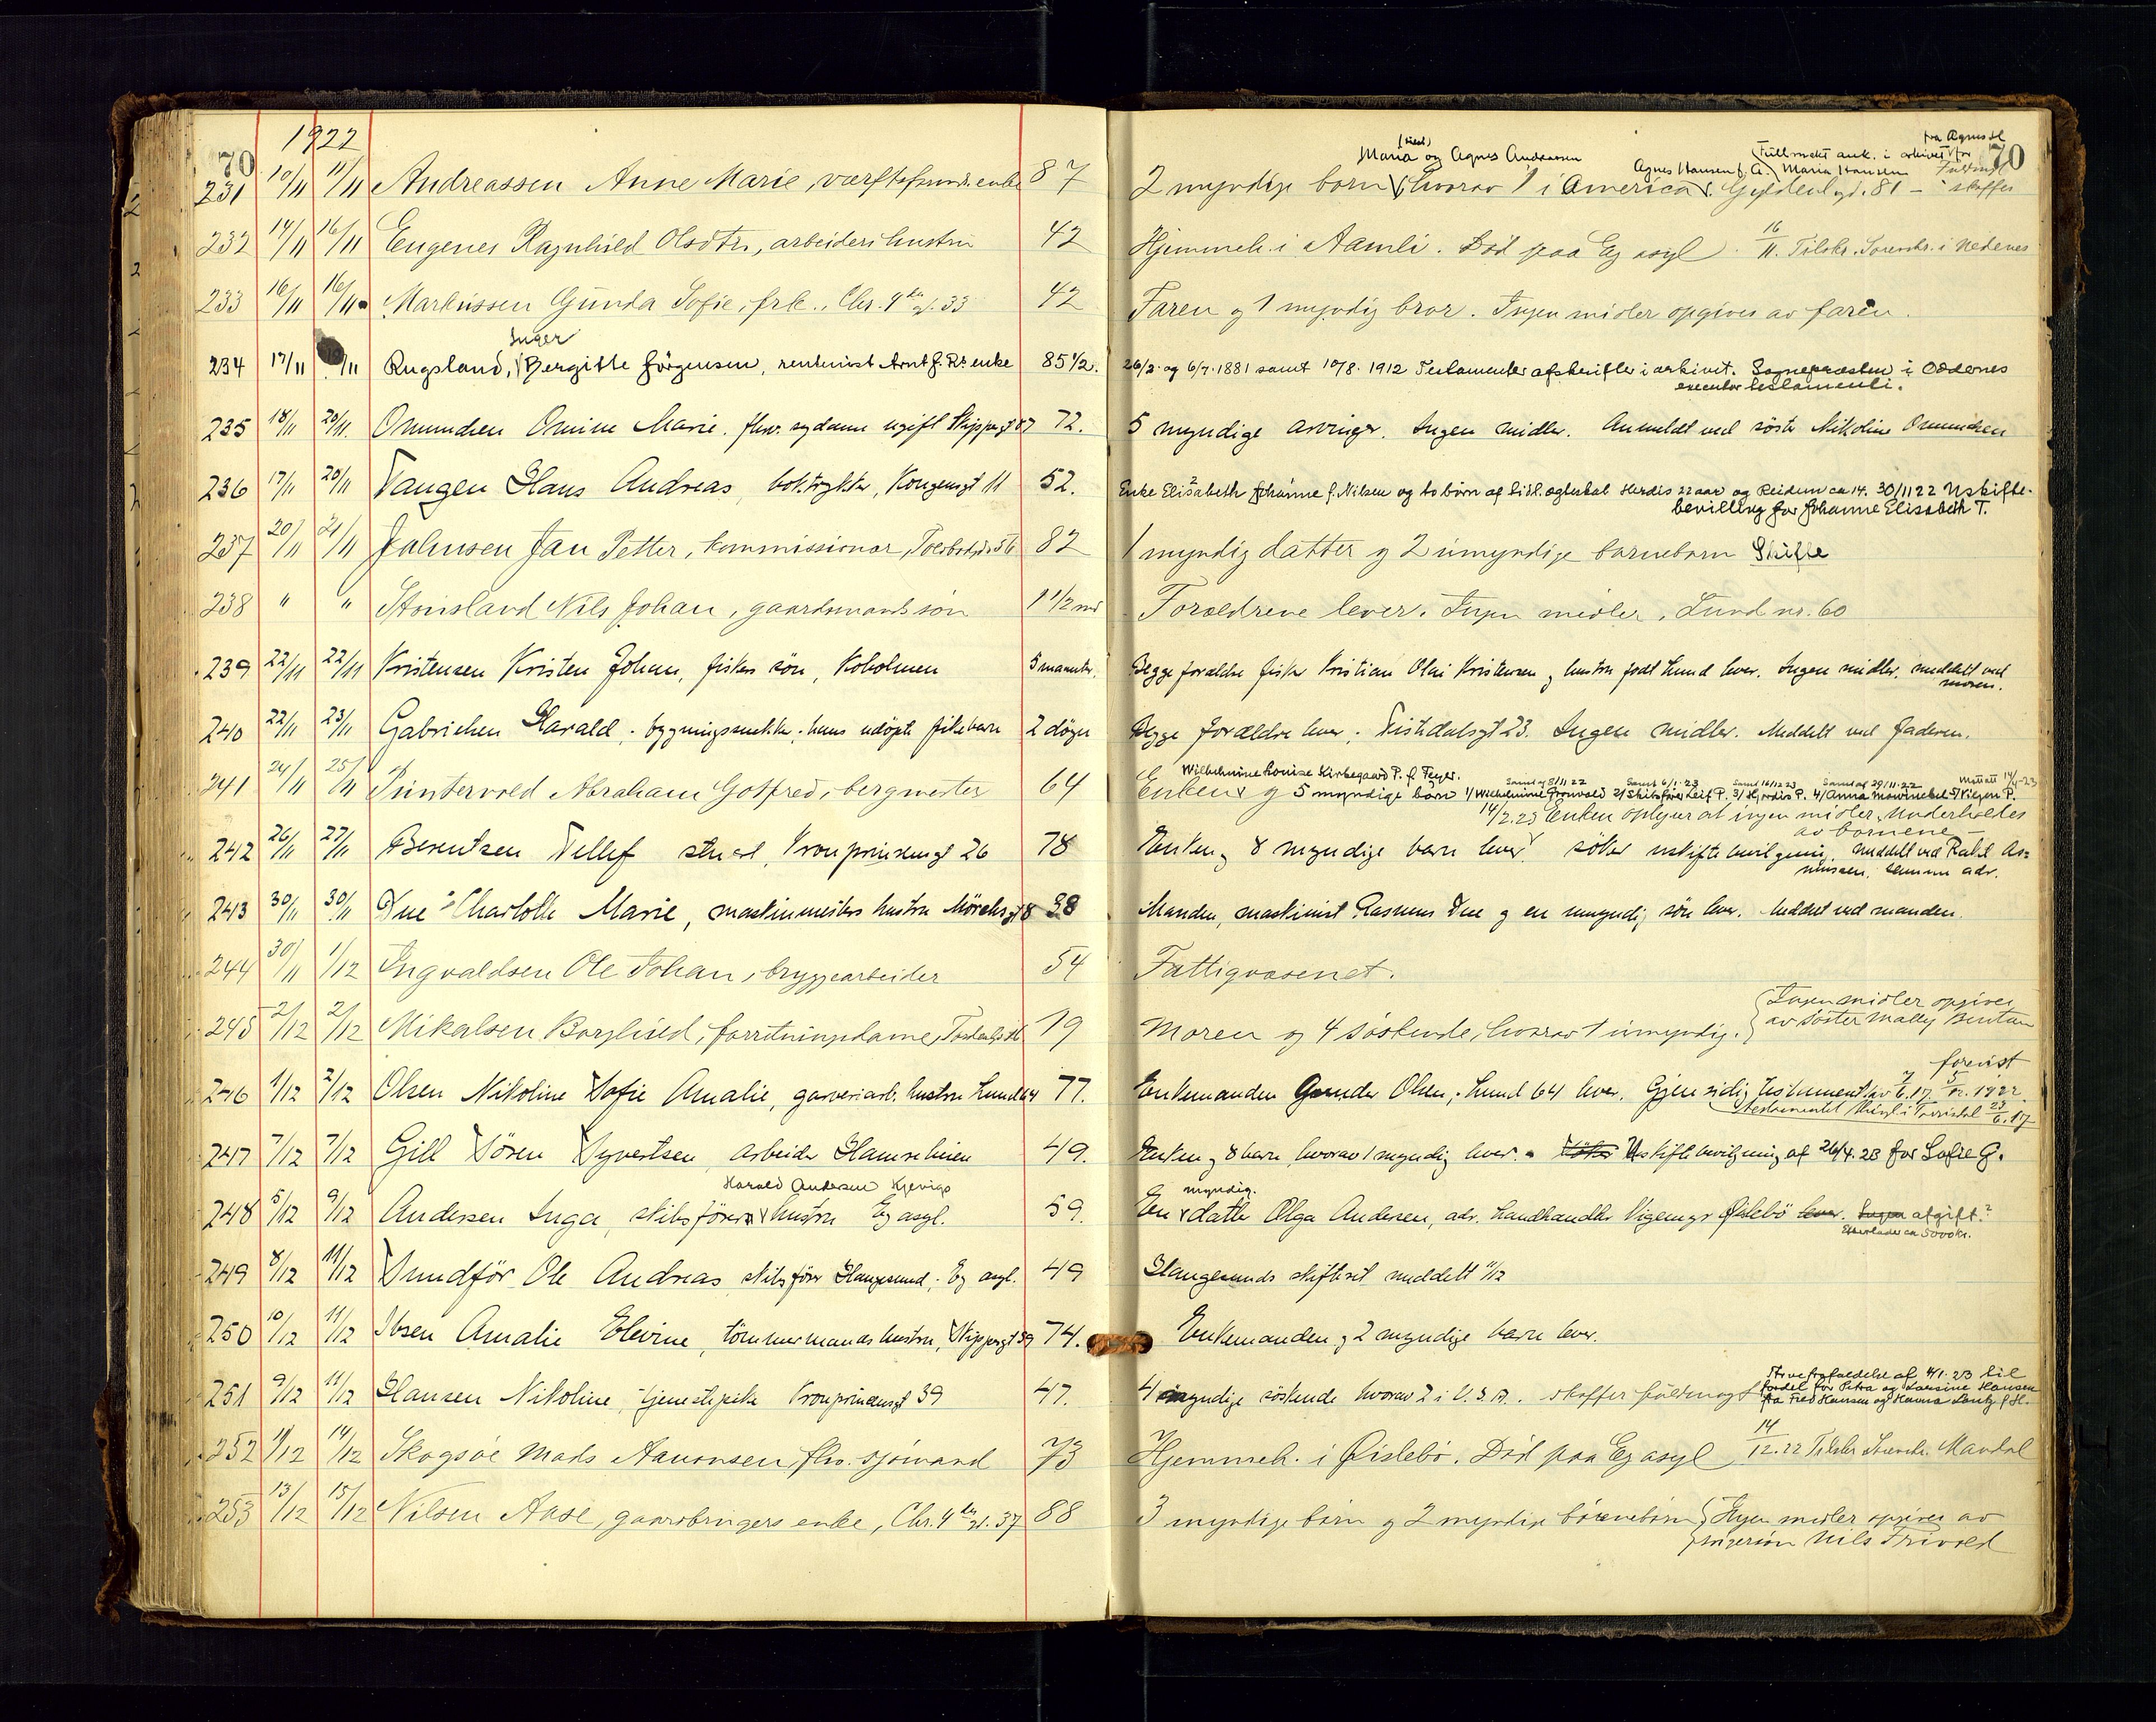 1922
70
231 10/11 11/11 Andreassen Anne Marie, værftsformds. enke 87
232 14/11 16/11 Eugenes Ragnhild Olsdtr, arbeiders hustru 42
233 16/11 16/11 Markussen Gunda Sofie, frk., Chr. 4des gt. 33 42
Inger
234 17/11 /11 Rugsland, Bergitte Jörgensen, rentenist Arnt J. Rs enke 85 1/2.
235 18/11 20/11. Omundsen Omine Marie. fhv. sydame ugift Skippergt 72.
236 17/11 20/11 Vangen Hans Andreas, boktrykker, Kongensgt 11 52.
237 20/11 21/11 Johnsen Jan Petter, kommissionær, Toldbodgd. 56 82
238 " " Stousland Nils Johan, gaardmands søn 1 1/2 md
239 22/11 22/11 Kristensen Kristen Johan, fiskers sön, Koholmen 5 maaneder.
240 22/11 23/11 Gabrielsen Harald, bygningssnekker, hans udöpte pikebarn 2 döger
241 24/11 25/11 Puntervold Abraham Gotfred, bergmester 64
242 26/11 27/11 Berentsen Tellef stuert, Kronprindsensgt 26 78
243 30/11 30/11 Due Charlotte Marie, maskinmesters hustru Mörchsgt 8 38
244 30/11 1/12 Ingvaldsen Ole Johan, bryggearbeider 54
245 2/12 2/12 Mikalsen Borghild, forretningsdame, 19
246 1/12 2/12 Olsen Nikoline Sofie Amalie, garveriarb. hustru Lund 64 77.
247 7/12 7/12 Gill Sören Syvertsen arbeider Hamreheien 49.
Harald Andersen Kjevigs
248 5/12 9/12 Andersen Inga, skibsförer hustru Eg asyl. 59.
249 8/12 11/12 Sundför Ole Andreas skibsförer Haugesund, Eg asyl. 49
250 10/12 11/12 Ibsen Amalie Elevine, tömmermands hustru, Skippergt 39 74.
251 9/12 11/12 Hansen Nikoline, tjenestepike Kronprindsensgt 39 47.
252 11/12 14/12 Skogsøe Mads Aanonsen fhv. sjömand 73
253 13/12 15/12 Nilsen Aase, gaardbrugers enke, Chr. 4des gt. 37 88
70
fra Agnes H
Maria og Agnes Andreassen
Fullmakt ank. i arkivet for
Agnes Hansen f. A. Maria Hansen
2 myndige børn hvorav 1 i America. Gyldenl. gd. 81 - skaffes
Hjemmeh. i Aamli. Död paa Eg asyl. 16/11. Tilskr. Sorenskr. i Nedenes
Faren og 1 myndig bror. Ingen midler opgives av faren.
26/2. og 6/7. 1881 samt 10/8. 1912 Testamenter afskrifter i arkivet. Sognepræsten i Oddernes
executor testamenti.
5 myndige arvinger. Ingen midler. Anmeldt ved söster Nikoline Omundsen
Enke Elisabeth Johanne f. Nilsen og to børn af sidl. ægteskab Herdis 22 aar og Reidun ca 14. 30/11 22 Uskifte-
bevilling for Johanne Elisabeth T.
1 myndig datter og 2 umyndige barnebarn Skifte
Forældrene lever. Ingen midler. Lund nr. 60
Begge forældre fisker Kristian Olai Kristensen og hustru födt Lund lever. Ingen midler. meddelt ved
moren.
Begge forældre lever, Tistedalsgt 23. Ingen midler. Meddelt ved faderen.
Wilhelmine Louise Kirkegaard P. f. Feyer.
Samt af 8/11 22 Samt 6/1. 23 Samt 16/12 23 Samt af 29/11. 22
Enken og 5 myndige børn 1/ Wilhelmine Grönvold 2/ Skibsfører Leif P. 3/ Hjördis P. 4/ Anna Mowinckel 5/ P.
14/2. 23 Enken oplyser at ingen midler. Underholdes
av børnene -
Enken og 8 myndige barn lever, söker uskiftebevilgning. Meddelt ved Rakel As-
mussen, samme adr.
Manden, maskinist Rasmus Due og en umyndig sön lever. Meddelt ved manden.
Fattigvæsenet.
Moren og 4 søskende, hvorav 1 umyndig. Ingen midler opgives
av søster Mally Bentsen
forevist
Enkemanden Gunder Olsen, Lund 64 lever. Gjensidig testament av 7/6. 17. 5/12. 1922
Testamentet thingl. i Torridal 23/6. 17
Enken og 8 barn, hvorav 1 myndig lever. Söker Uskiftebevilgning af 26/4. 23 for Sofie G.
myndig.
En datter Olga Andersen, adr. Landhandler Øislebö lever. Ingen afgift.?
Efterlader ca 5000 kr.
Haugesunds skifteret meddelt 11/12
Enkemanden og 2 myndige barn lever.
4 myndige söskende hvorav 2 i U.S.A. skaffer fuldmagt Arvefrafaldelse af 4/1. 23 til
fordel for Petra og Lovisine Hansen
fra Fred Hansen og Hanna Lantz f. H.
Hjemmeh. i Øislebö. Död paa Eg asyl 14/12. 22 Tilskr. Sorenskr. Mandal
3 myndige børn og 2 myndige børnebørn Ingen midler opgives av
svigersøn Nils Trivold